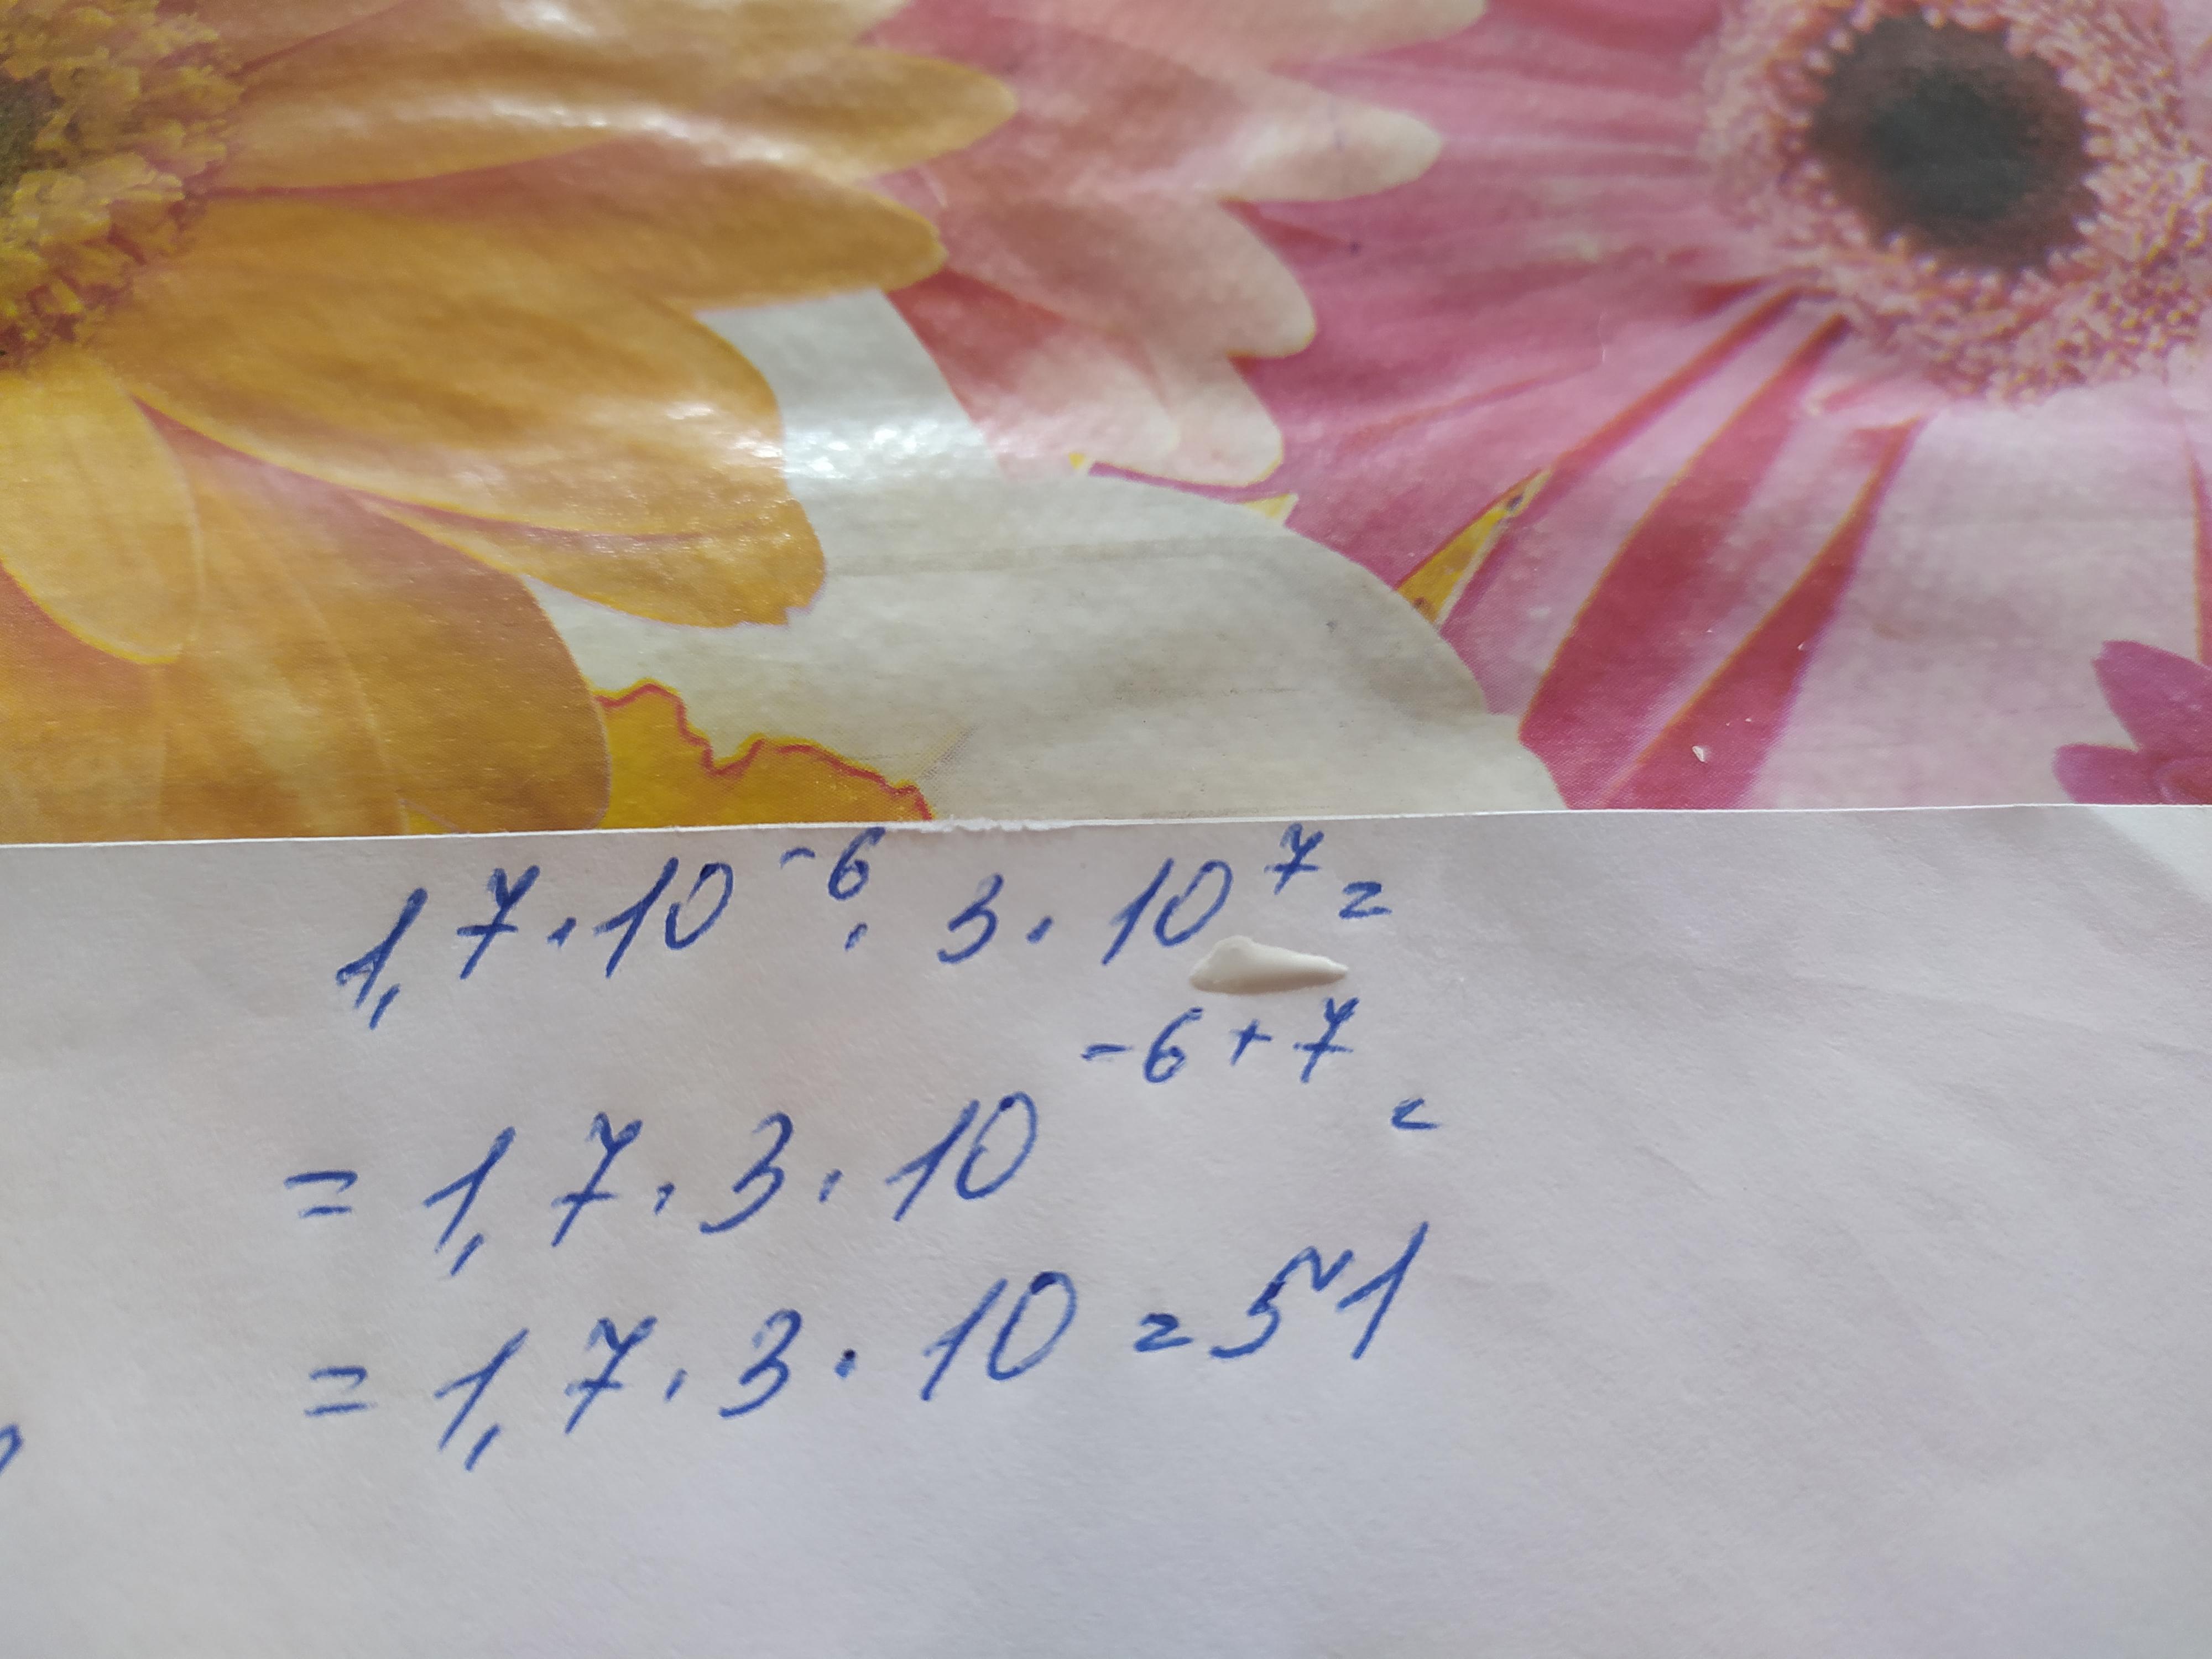 1,7·10⁻⁶·3·10⁷=
=1,7·3·10⁻⁶⁺⁷=
=1,7·3·10=51